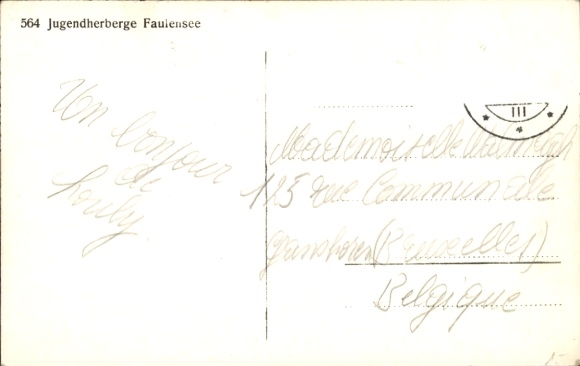 564 Jugendherberge Faulensee
Un bonjour
de
Louly
III
Mademoiselle
125 rue Communale
Ganshoren (Bruxelles)
Belgique